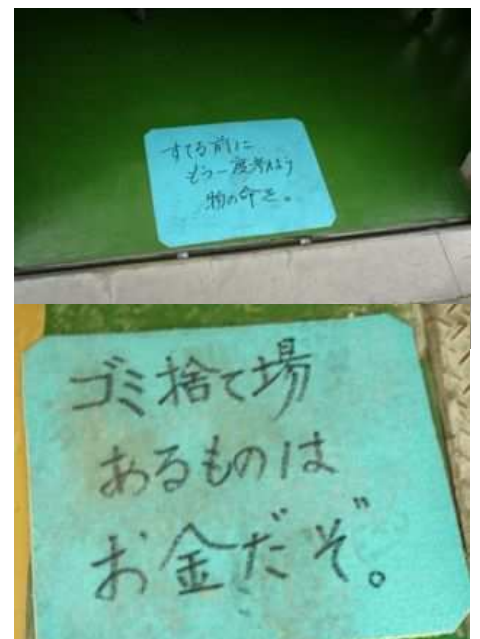 すてる前に
もう一度考えよう
物の命を。
ゴミ捨て場
あるものは
お金だぞ。